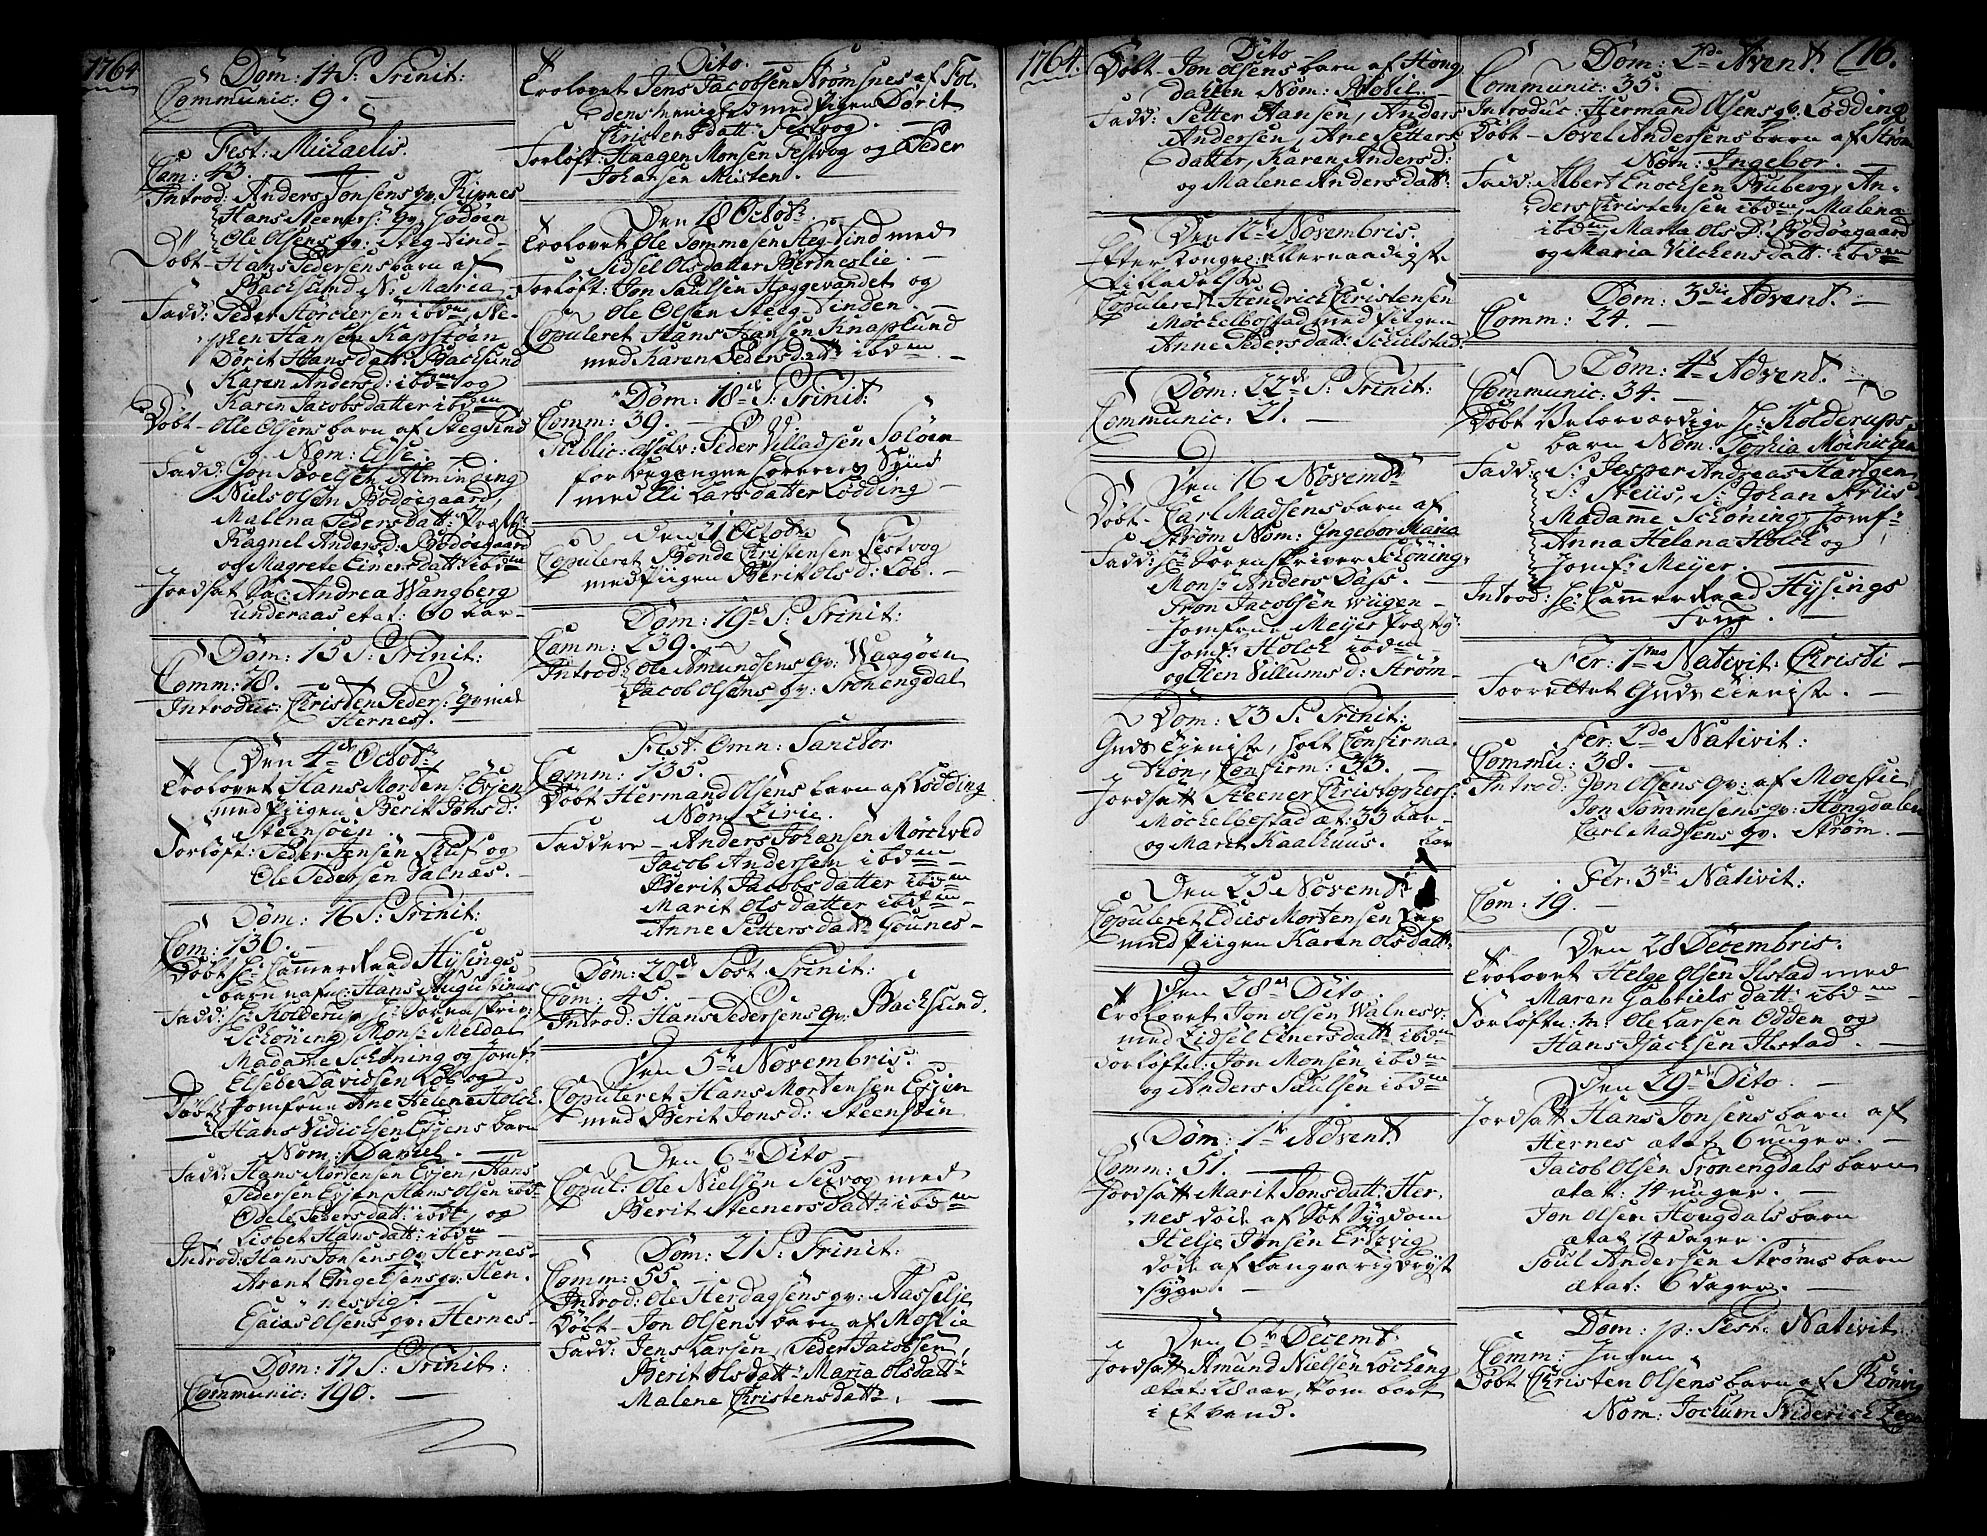 1764
Dom: 14 S: Trinit:
Communic: 9. —
Fest: Michaelis.
Com: 43.
Introd: Anders Jonsens qv: Ripnes
Hans Steeners: qv: Godøen
Ole Olsens qv: Steg-Tind-
Døbt- Hans Pedersens barn af
Bachsund N: Maria
Fadd: Peder Størchersen ibdm, Ne-
Hansen Kapstøen
Dorit Hansdatt: Bachsund
Karen Andersd: ibdm og
Karen Jacobsdatter ibdm
Døbt- Olle Olsens barn af Steg Tind
Nom: Else. —
Fadd: Jon Povelsen Alminding
Niels Olsen Bodøegaard,
Malena Pedersdatt:
Ragnel Andersd: Bodøegaard
og Magrete Einersdatt: ibdm
Jordsat Sal: Andrea Wangberg
Underaas etat: 60 aar-
Dom: 15 S: Trinit:
Comm: 18. —
Introduc: Christen Peders: qvinde
Hernes.
Den 4de Octob:
Trolovet Hans Morten: Evjen
med Piigen Berit Jonsd:
Steensøen.
Forløft: Peder Jensen og
Ole Pedersen Valnæs.
Dom: 16 S: Trinit:
Com: 136. —
Døbt Hr: Cammerraad Hysings
barn nafn: Hans Augustinus
Fadd: Hr: Kolderup, Hr: Sorenskriv:
Schøning, Mons: Meldal
Madame Schøning og Jomf:
Elsebe Davidsen og
Jomfrue Ane Helene Holck.
Døbt Hans Didichsen Evjens barn
Nom: Daniel. —
Fadd: Hans Mortensen Evjen, Hans
Pedersen Evjen, Hans Olsen ibdm
Odele Pedersdatt: ibdm, og
Lisbet Hansdatt: ibdm
Introd: Hans Jonsens qv: Hernes-
Arent Engelsens qv: Hen-
nesvig.
Esaias Olsens qv: Hernes-
Dom: 17 S: Trinit:
Communic: 190. —
Dito. —
Trolovet Jens Jacobsen Strømsnes af Fol-
dens menighed med Pigen Dorit
Christensdatt: Festvog. —
Forløft: Haagen Monsen Festvog og Peder
Johansen Misten.
Den 18 Octob:
Trolovet Ole Tommesen Steg-Tind med
Sidsel Olsdatter Bertneslie. —
Forløft: Jon Paulsen Heggevandet og
Ole Olsen Steeg-Tinden. —
Copuleret Hans Hansen Knaplund
med Karen Pedersd: ibdm —
Dom: 18de S: Trinit:
Comm: 39. —
Public: absolv: Peder Villadsen Soløen
for begangne Leyermaal Synd
med Eli Larsdatter Lødding —
den 21 Octob:
Copuleret Bonde Christensen Festvog
med Piigen Berit Olsd: Løb. —
Dom: 19de S: Trinit:
Comm: 239. —
Introd: Ole Amundsens qv: Waagøen
Jacob Olsens qv: Tronengdal
Fest: Omn: Sanctor
Comm: 135.
Døbt Hermand Olsens barn af Lødding
Nom: Zirie.
Faddere — Anders Johansen Mørchved
Jacob Andersen ibdm —
Berit Jacobsdatter ibdm
Marit Olsdatter ibdm —
Anne Pettersdatt: Gounes-
Dom: 20de Post Trinit:
Com: 45. —
Introd: Hans Pedersens qv: Bachsund.
Den 5te Novembris. —
Copuleret Hans Mortensen Evjen
med Berit Jonsd: Steensøen
Den 6te Dito —
Copul: Ole Nielsen Seivog med
Berit Steenersdatt: ibdm
Dom: 21 S: Trinit:
Comm: 55. —
Introd: Ole Herdagsens qv: Hasselje
Døbt- Jon Olsens barn af Moslie
Fadd: Jens Larsen, Peder Jacobsen,
Berit Olsdatt: Maria Olsdatt:
Malene Christensdatt:
1764.
Dito
Døbt- Jon Olsens barn af Hong
dalen Nom: —
Fadd: Petter Hansen, Anders
Andersen, Ane Petters
datter, Karen Andersd:
og Malene Andersdatt:
Den 12te Novembris.
Efter Konge: allernaadigste
tilladelse
Copuleret Hendrich Christensen
Mochelbostad med Piigen
Anne Pedersdatt: Schielstad:
Dom: 22de S: Trinit:
Communic: 21. —
Den 16 Novembr:
Døbt- Carl Madsens barn af
Strøm Nom: Yngebor Maria
Fadd: Hr Sorenskriver Schøning,
Mons: Anders Dass. —
Tron Jacobsen Vügen —
Jomfrue Meyer
Jomf: Holck ibdm —
og Elen Villumsd: Strøm-
Dom: 23 S: Trinit:
Guds Tienniste, holt Confirma-
tion, Confirm: 33. —
Jordsatt Steener Christophers:
Mochelbostad æt: 33 aar-
og Maret Kaalhuus. aar
Den 25 Novemb:
Copuleret Edies Mortensen
med Piigen Karen Olsdatt:
Den 28de Dito.
Trolovet Jon Olsen Walnes v:
med Zidsel Einersdatt: ibdm
Forløft: Jon Monsen ibdm
og Anders Paulsen ibdm
Dom: 1te Advent:
Comm: 51. —
Jordsatt Marit Jonsdatt: Her-
nes døde af Sot Sygdom
Helje Jonsen Erlvig
døde af Langvarig Bryst
syge. —
Den 6te Decemb:
Jordsatt Amund Nielsen Løchäng
ætat: 28 aar, kom bort
i Et vand.
116.
Dom: 2de Advent.
Communic: 35.
Introduc: Hermand Olsens qv: Lødding
Døbt- Povel Andersens barn af Strøm
Nom: Ingebor. —
Fadd: Albert Enochsen Bruberg, An-
ders Christensen ibdm, Malena
ibdm Maria Ols D: Bodøegaard
og Maria Vilchensdatt: ibdm
Dom: 3die Advent. —
Comm: 24. —
Dom: 4de Advent. —
Communic: 34. —
Døbt Velærværdige Hr: Kolderups
barn Nom: Sophia
Fadd: S: Jesper Andreas Hartgen
S: Steiis, S: Johan Striis
Madame Schøning, Jomf:
Anna Helena Holck og
Jomf: Meyer. —
Introd: Hr: Cammerraad Hysings
Frue. —
Fer: 1ma Nativit: Christi —
Forrettet Guds tieniste. —
Fer: 2do Nativit:
Commu: 38. —
Introd: Jon Olsens qv: af Moeslie,
Jon Tommesens qv: Hongdalen
Carl Madsens qv: Strøm. —
Fer: 3die Nativit:
Com: 19. —
Den 28 Decembris.
Trolovet Helge Olsen Ilstad med
Maren Gabrielsdatt: ibdm —
Forløftn: m: Ole Larsen Odden og
Hans Isachsen Ilstad. —
Den 29de Dito. —
Jordsatt Hans Jonsens barn af
Hernes ætat 6 uger. —
Jacob Olsen Tronengdals barn
ætat: 14 uger. —
Jon Olsen Hongdals barn
ætat 14 dager. —
Poul Andersen Strøms barn
ætat: 6 dager. —
Dom: p: Fest: Nativit:
Comm: Ingen.
Døbt Christen Olsens barn af Rønvig
Nom: Jochum Friderich